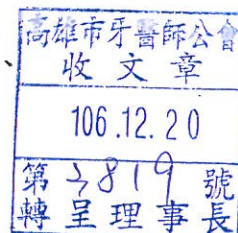 高雄市牙醫師公會
收文章
106.12.20
第3819號
轉呈理事長